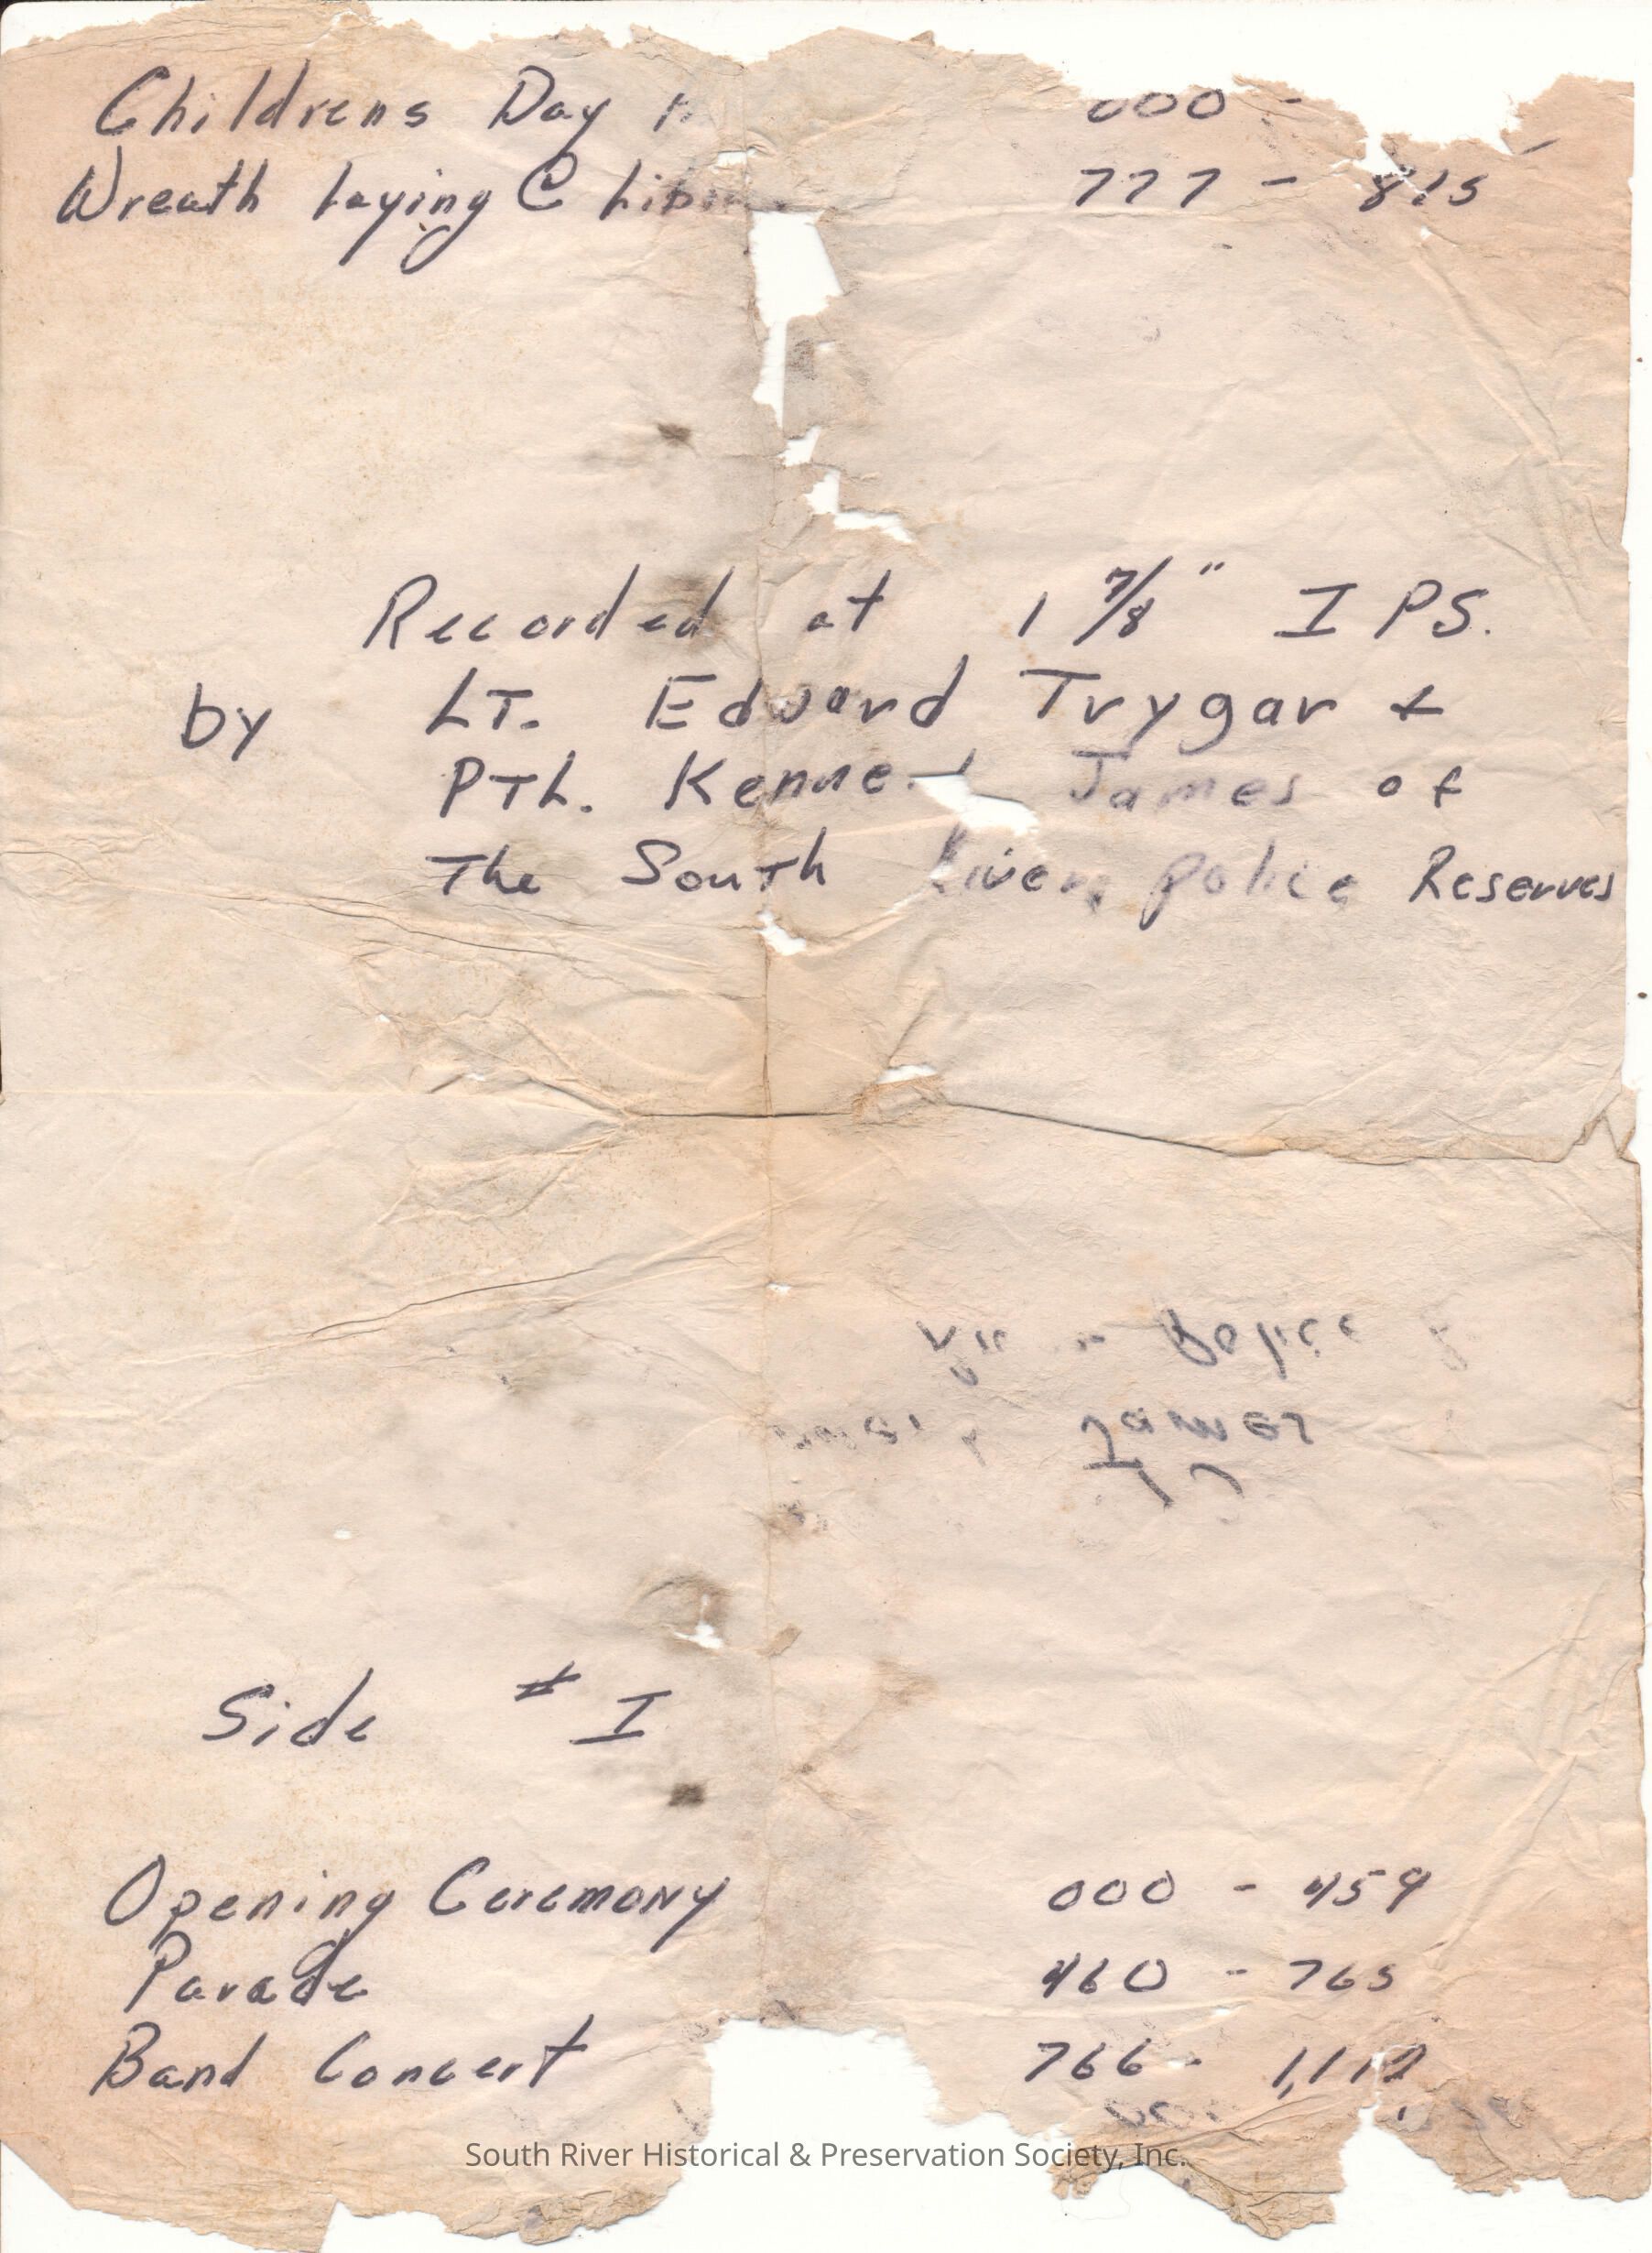 Childrens Day 000 -
Wreath laying @ 777 - 815
Recorded at 1 7/8" IPS.
by LT. Edward Trygar &
PTL. James of
The South River Police Reserves
Side # I
Opening Ceremony 000 - 459
Parade 460 - 765
Band Concert 766 -
South River Historical & Preservation Society, Inc.